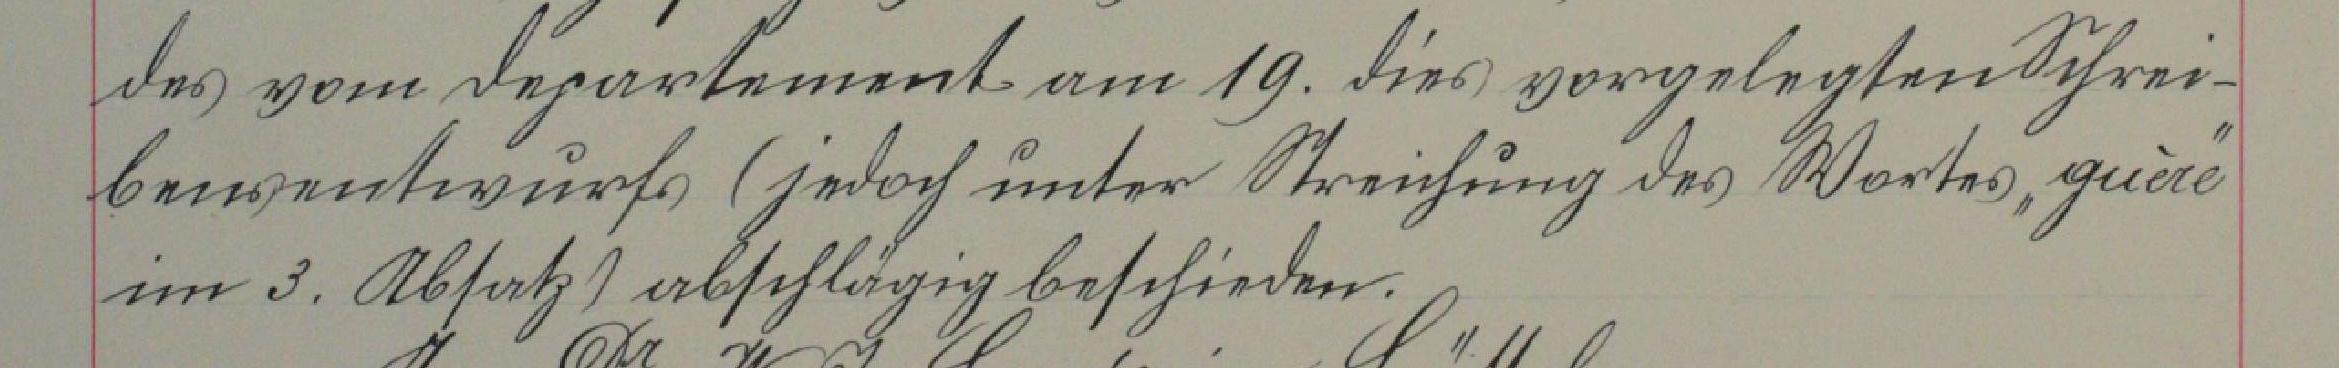 des vom Departement am 19. dies vorgelegten Schrei-
bensentwurfs (jedoch unter Streichung des Wortes „guère"
im 3. Absatz) abschlägig beschieden.